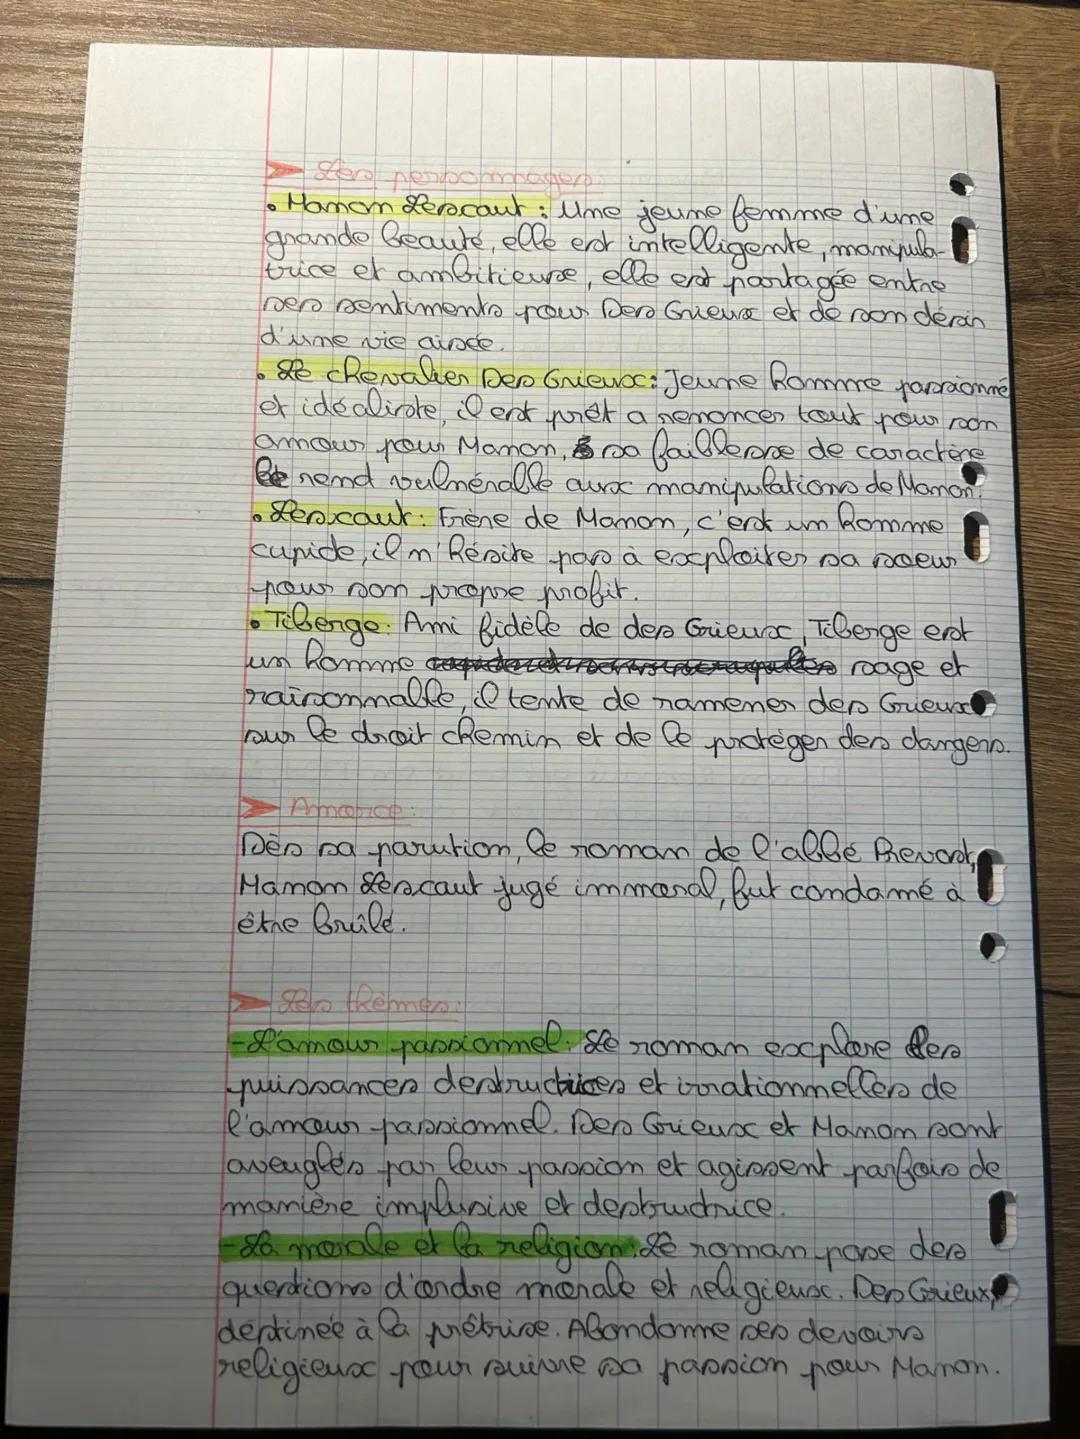 Les personnages:
• Manon Lescaut : Une jeune femme d'une
grande beauté, elle est intelligente, manipula-
trice et ambitieuse, elle est partagée entre
ses sentiments pour Des Grieux et de son désir
d'une vie aisée.
• Le chevalier Des Grieux : Jeune homme passionné
et idéaliste, il est prêt a renoncer tout pour son
amour pour Manon, sa faiblesse de caractère
le rend vulnérable aux manipulations de Manon.
• Lescaut : Frère de Manon, c'est un homme
cupide, il n'hésite pas à exploiter sa soeur
pour son propre profit.
• Tiberge : Ami fidèle de des Grieux, Tiberge est
un homme sage et
raisonnable, il tente de ramener des Grieux
sur le droit chemin et de le protéger des dangers.
Amorce :
Dès sa parution, le roman de l'abbé Prevost,
Manon Lescaut jugé immoral, fut condamé à
être brûlé.
Les thèmes :
- L'amour passionnel : Le roman explore les
puissances destructrices et irrationnelles de
l'amour passionnel. Des Grieux et Manon sont
aveuglés par leur passion et agissent parfois de
manière implusive et destructrice.
- La morale et la religion : Le roman pose des
questions d'ordre morale et religieux. Des Grieux,
destinée à la prêtrise. Abondonne ses devoirs
religieux pour suivre sa passion pour Manon.